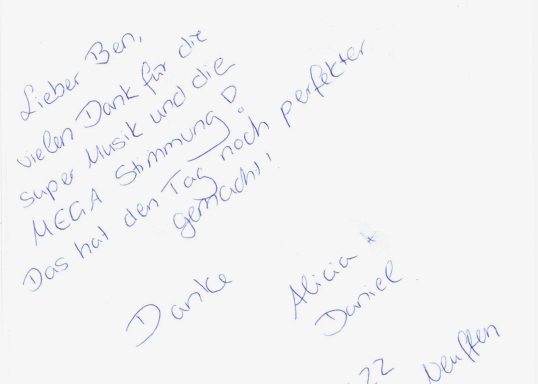 Lieber Ben,
vielen Dank für die
super Musik und die
MEGA Stimmung!
Das hat den Tag noch perfekter
gemacht!
Danke
Alicia +
Daniel
22 Neuffen